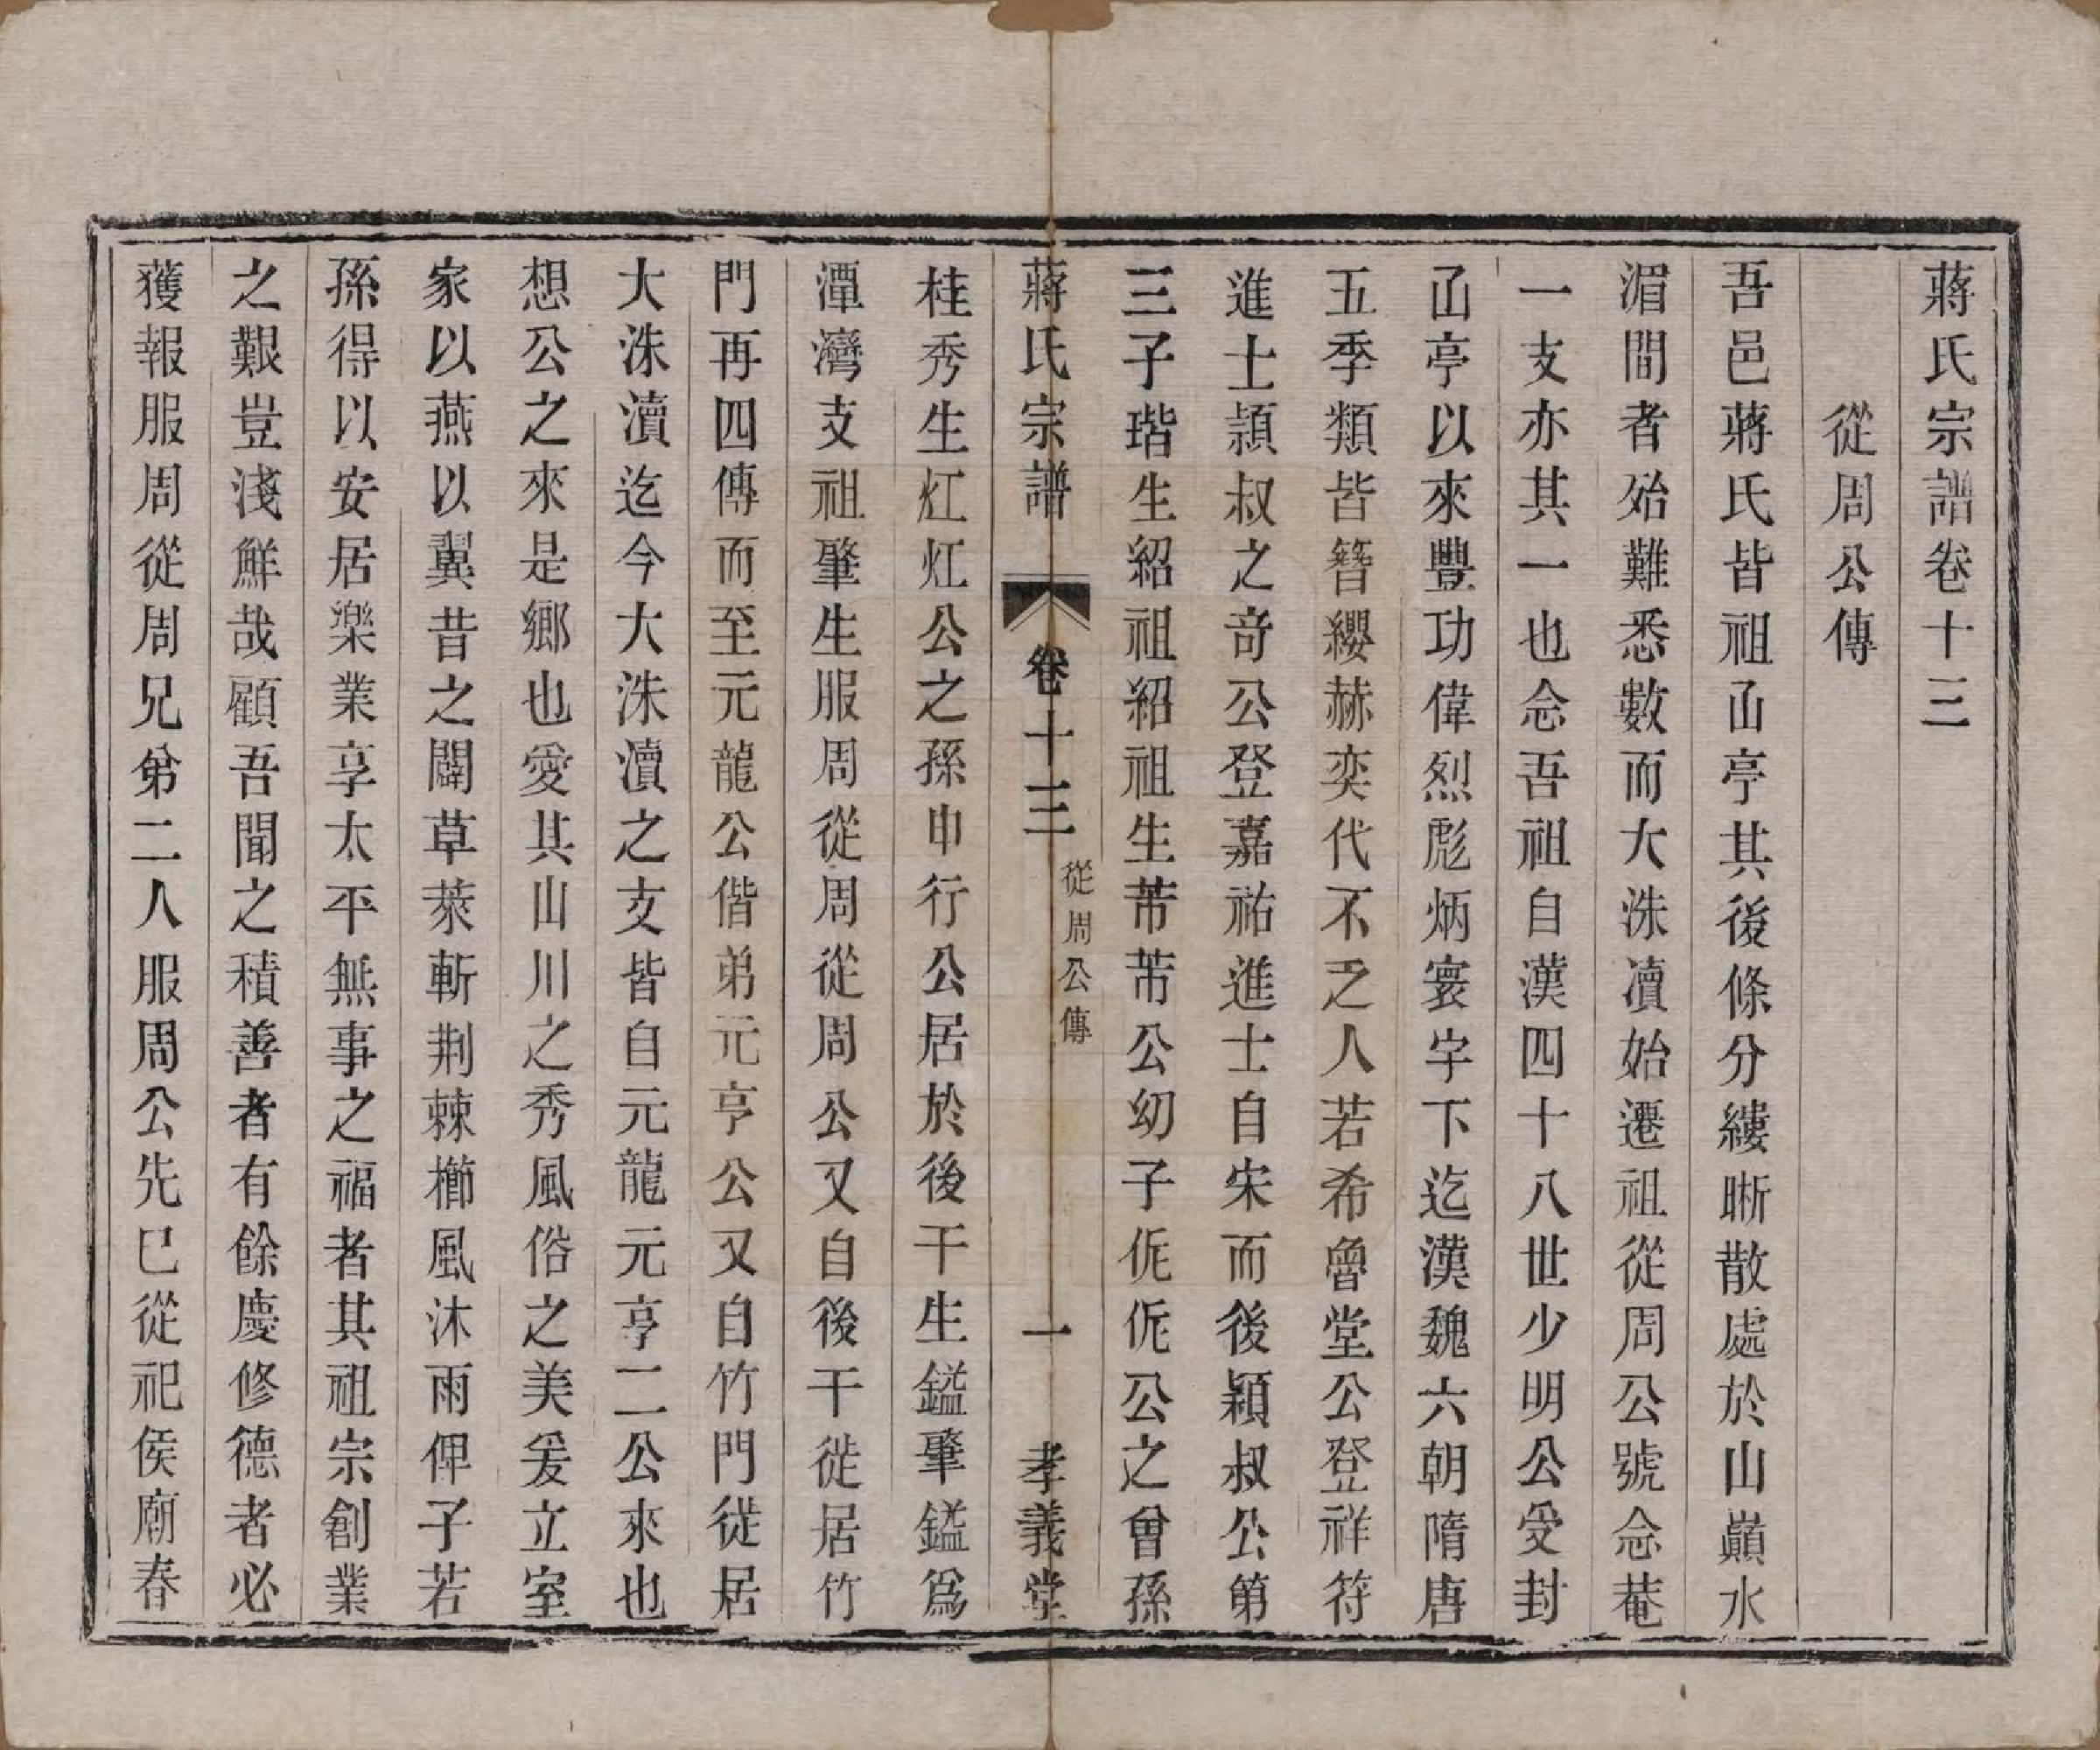 蔣氏宗譜卷十三
從周公傳
吾邑蔣氏皆祖山亭其後條分縷晰散處於山巔水
湄間者殆難悉數而大洙瀆始遷祖從周公號念菴
一支亦其一也念吾祖自漢四十八世少明公受封
山亭以來豐功偉烈彪炳寰宇下迄漢魏六朝隋唐
五季類皆簪纓赫奕代不乏人若希魯堂公登祥符
進士頴叔之奇公登嘉祐進士自宋而後穎叔公第
三子瑎生紹祖紹祖生芾芾公幼子伲伲公之曾孫
蔣氏宗譜
卷十三
從周公傳
一
孝義堂
桂秀生灴灴公之孫申行公居於後干生鎰肇鎰爲
潭灣支祖肇生服周從周從周公又自後干徙居竹
門再四傳而至元龍公偕弟元亨公又自竹門徙居
大洙瀆迄今大洙瀆之支皆自元龍元亨二公來也
想公之來是鄉也愛其山川之秀風俗之美爰立室
家以燕以翼昔之闢草萊斬荆棘櫛風沐雨俾子若
孫得以安居樂業享太平無事之福者其祖宗創業
之艱豈淺鮮哉顧吾聞之積善者有餘慶修德者必
獲報服周從周兄弟二人服周公先已從祀侯廟春